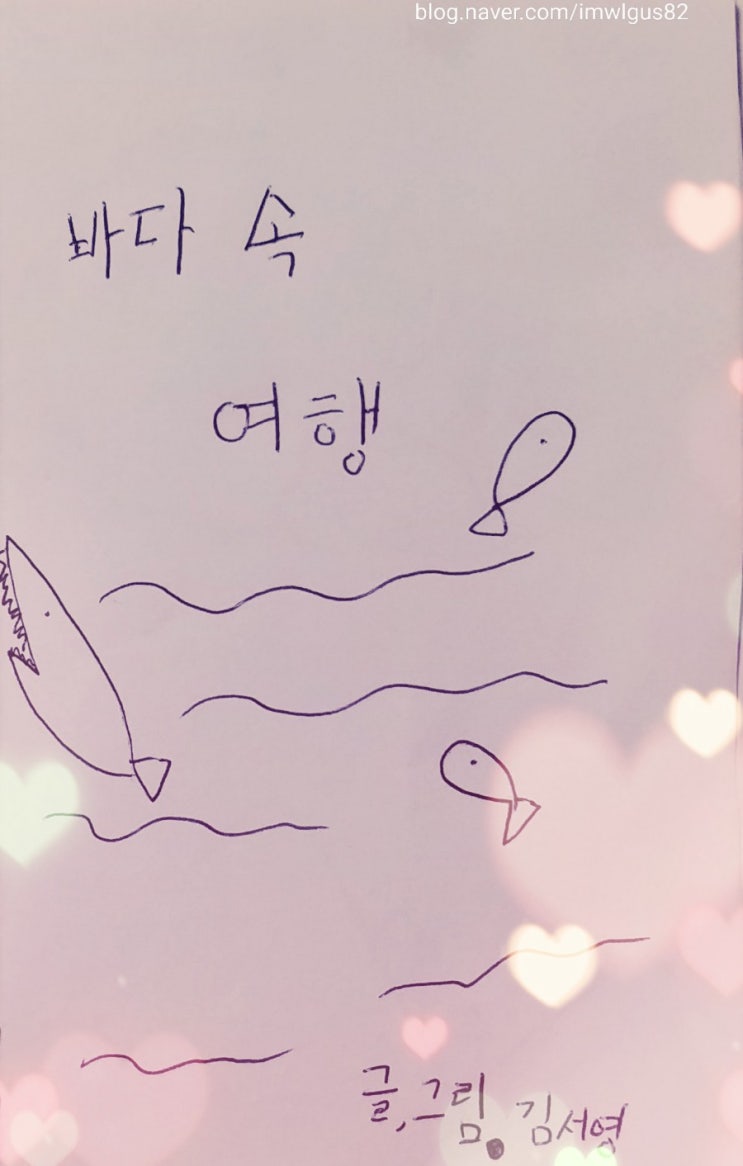 blog.naver.com/imwlgus82
바다 속
여행
글,그림. 김서영